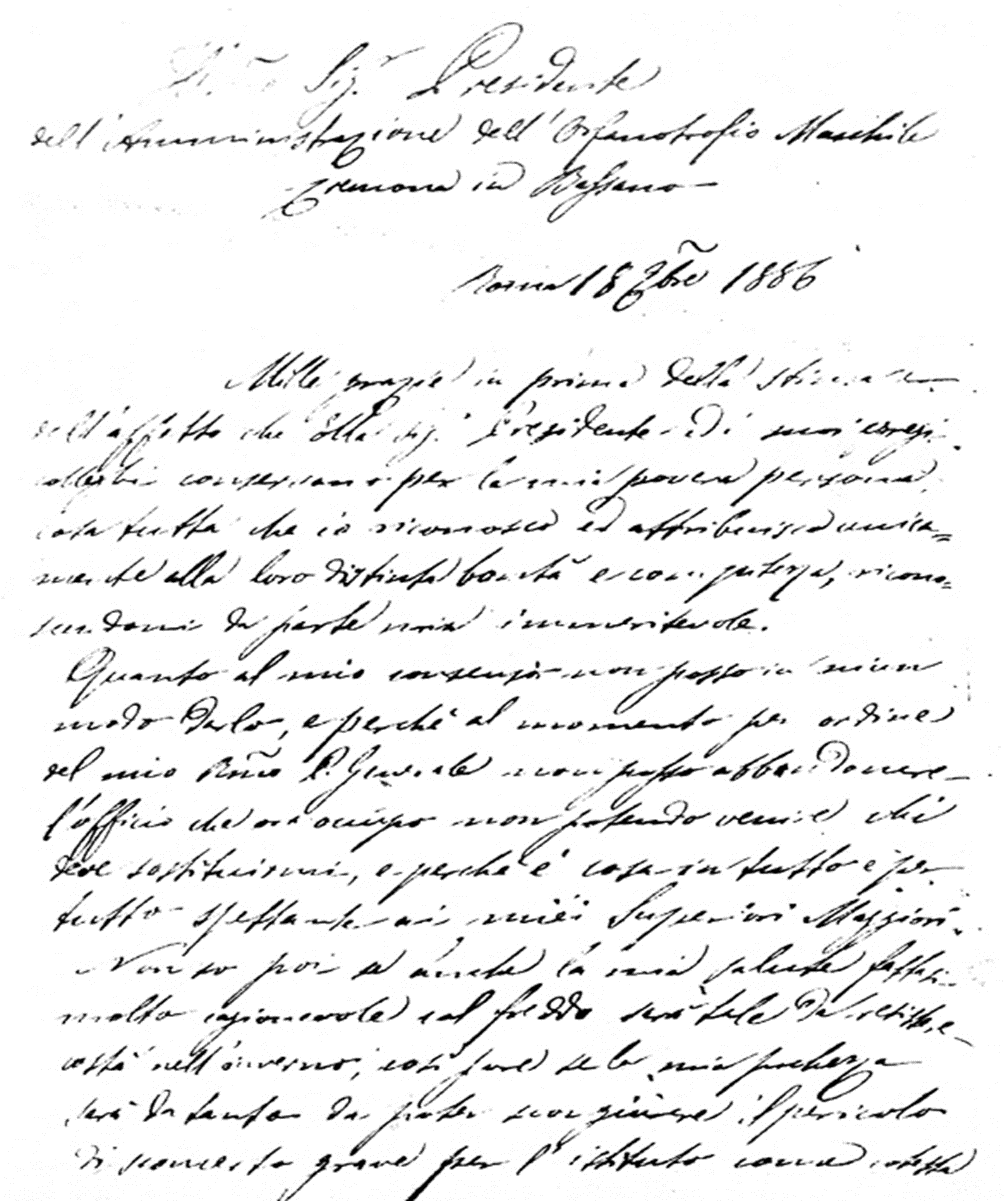 Ill.mo Sig.r Presidente
dell'Amministrazione dell'Orfanotrofio Maschile
Cremona in Bassano
Roma 18 9bre 1886
Mille grazie in prima della stima e
dell'affetto che Ella Sig. Presidente ed i suoi egregi
colleghi conservano per la mia povera persona,
cosa tutta che io riconosco ed attribuisco unica=
mente alla loro distinta bontà e compitezza, ricono=
scendomi da parte mia immeritevole.
Quanto al mio consenso non posso in niun
modo darlo, e perchè al momento per ordine
del mio Rmo P. Generale non posso abbandonare
l'officio che ora occupo non potendo venire chi
deve sostituirmi, e perchè è cosa in tutto e per
tutto spettante ai miei Superiori Maggiori.
Non so poi se anche la mia salute fattasi
molto cagionevole al freddo sarà tale da resistere
costà nell'inverno, così pure se la mia pochezza
sarà da tanto da poter scongiurare il pericolo
di sconcerto grave per l'istituto come cotesta